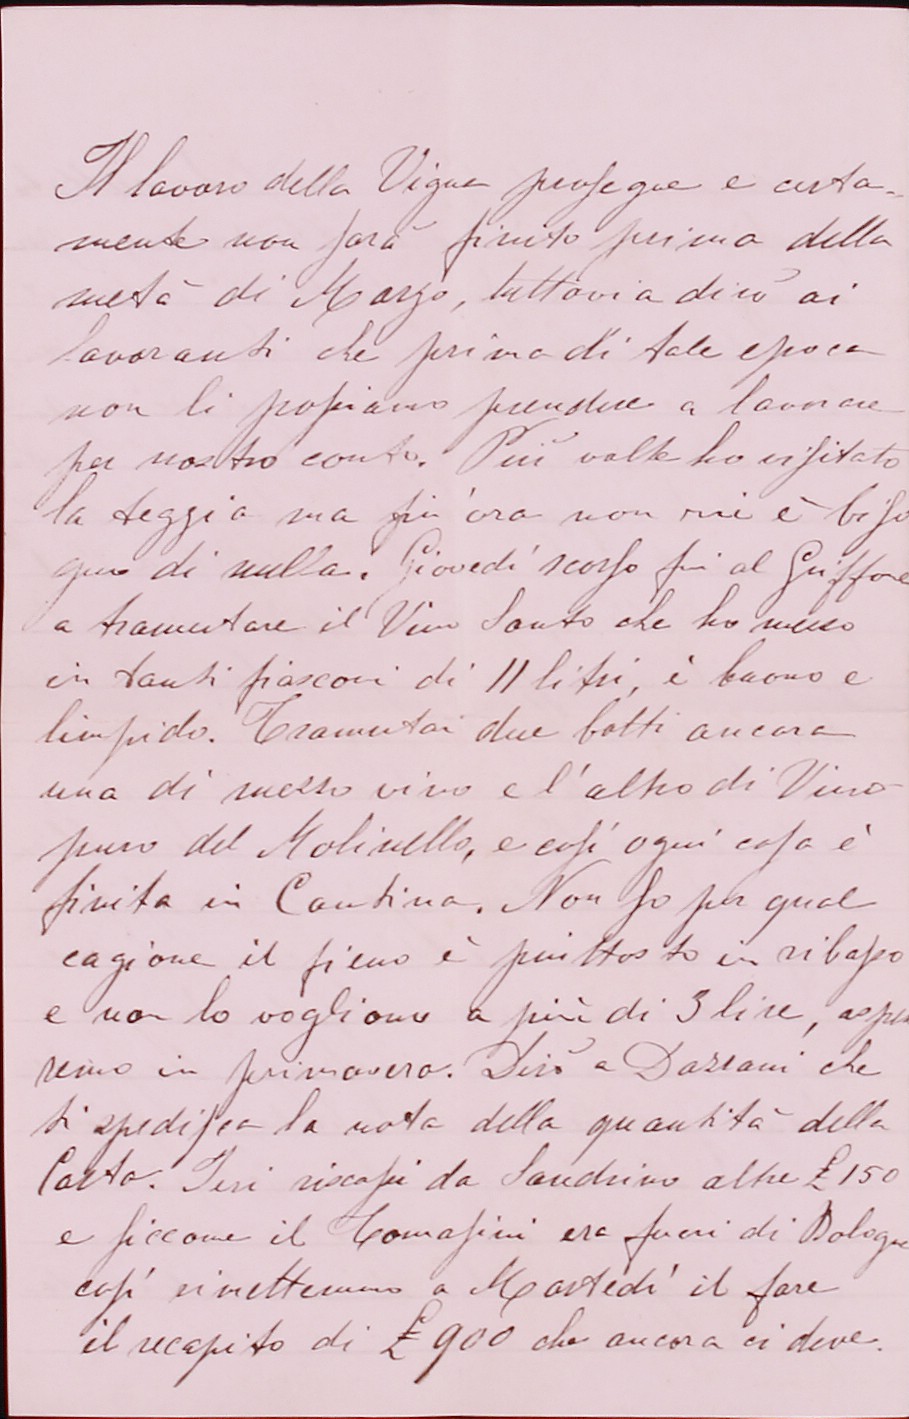 Il lavoro della Vigna prosegue e certa-
mente non sarà finito prima della
metà di Marzo, tuttavia dirò ai
lavoranti che prima di tale epoca
non li possiamo prendere a lavorare
per nostro conto. Più volte ho visitato
la teggia ma fin'ora non vi è biso
gno di nulla. Giovedì scorso fui al Griffone
a tramutare il Vino Santo che ho messo
in tanti fiasconi di 11 litri, è buono e
limpido. Tramutai due botti ancora
una di mezzo vino e l'altro di Vino
puro del Molinello, e così ogni cosa è
finita in Cantina. Non so per qual
cagione il fieno è piuttosto in ribasso
e non lo vogliono a più di 3 lire, aspet
remo in primavera. Dirò a Dazzani che
ti spedisca la nota della quantità della
Carta. Ieri riscossi da Sandrino altre £ 150
e siccome il Tomasini era fuori di Bologna
così rimettemmo a Martedì il fare
il recapito di £ 900 che ancora ci deve.